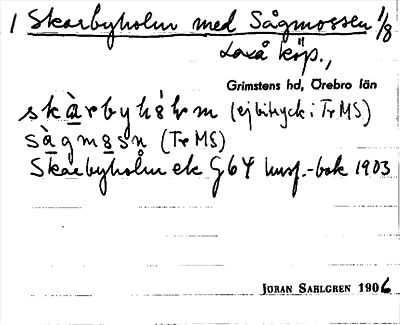 1 Skarbyholm med Sågmossen 1/8
Laxå köp.,
Grimstens hd, Örebro län
skàrbyhólm (ej bitryck i Tr MS)
sàgmosn̥ (Tr MS)
Skarbyholm ek G64 husf.-bok 1903
JÖRAN SAHLGREN 1906